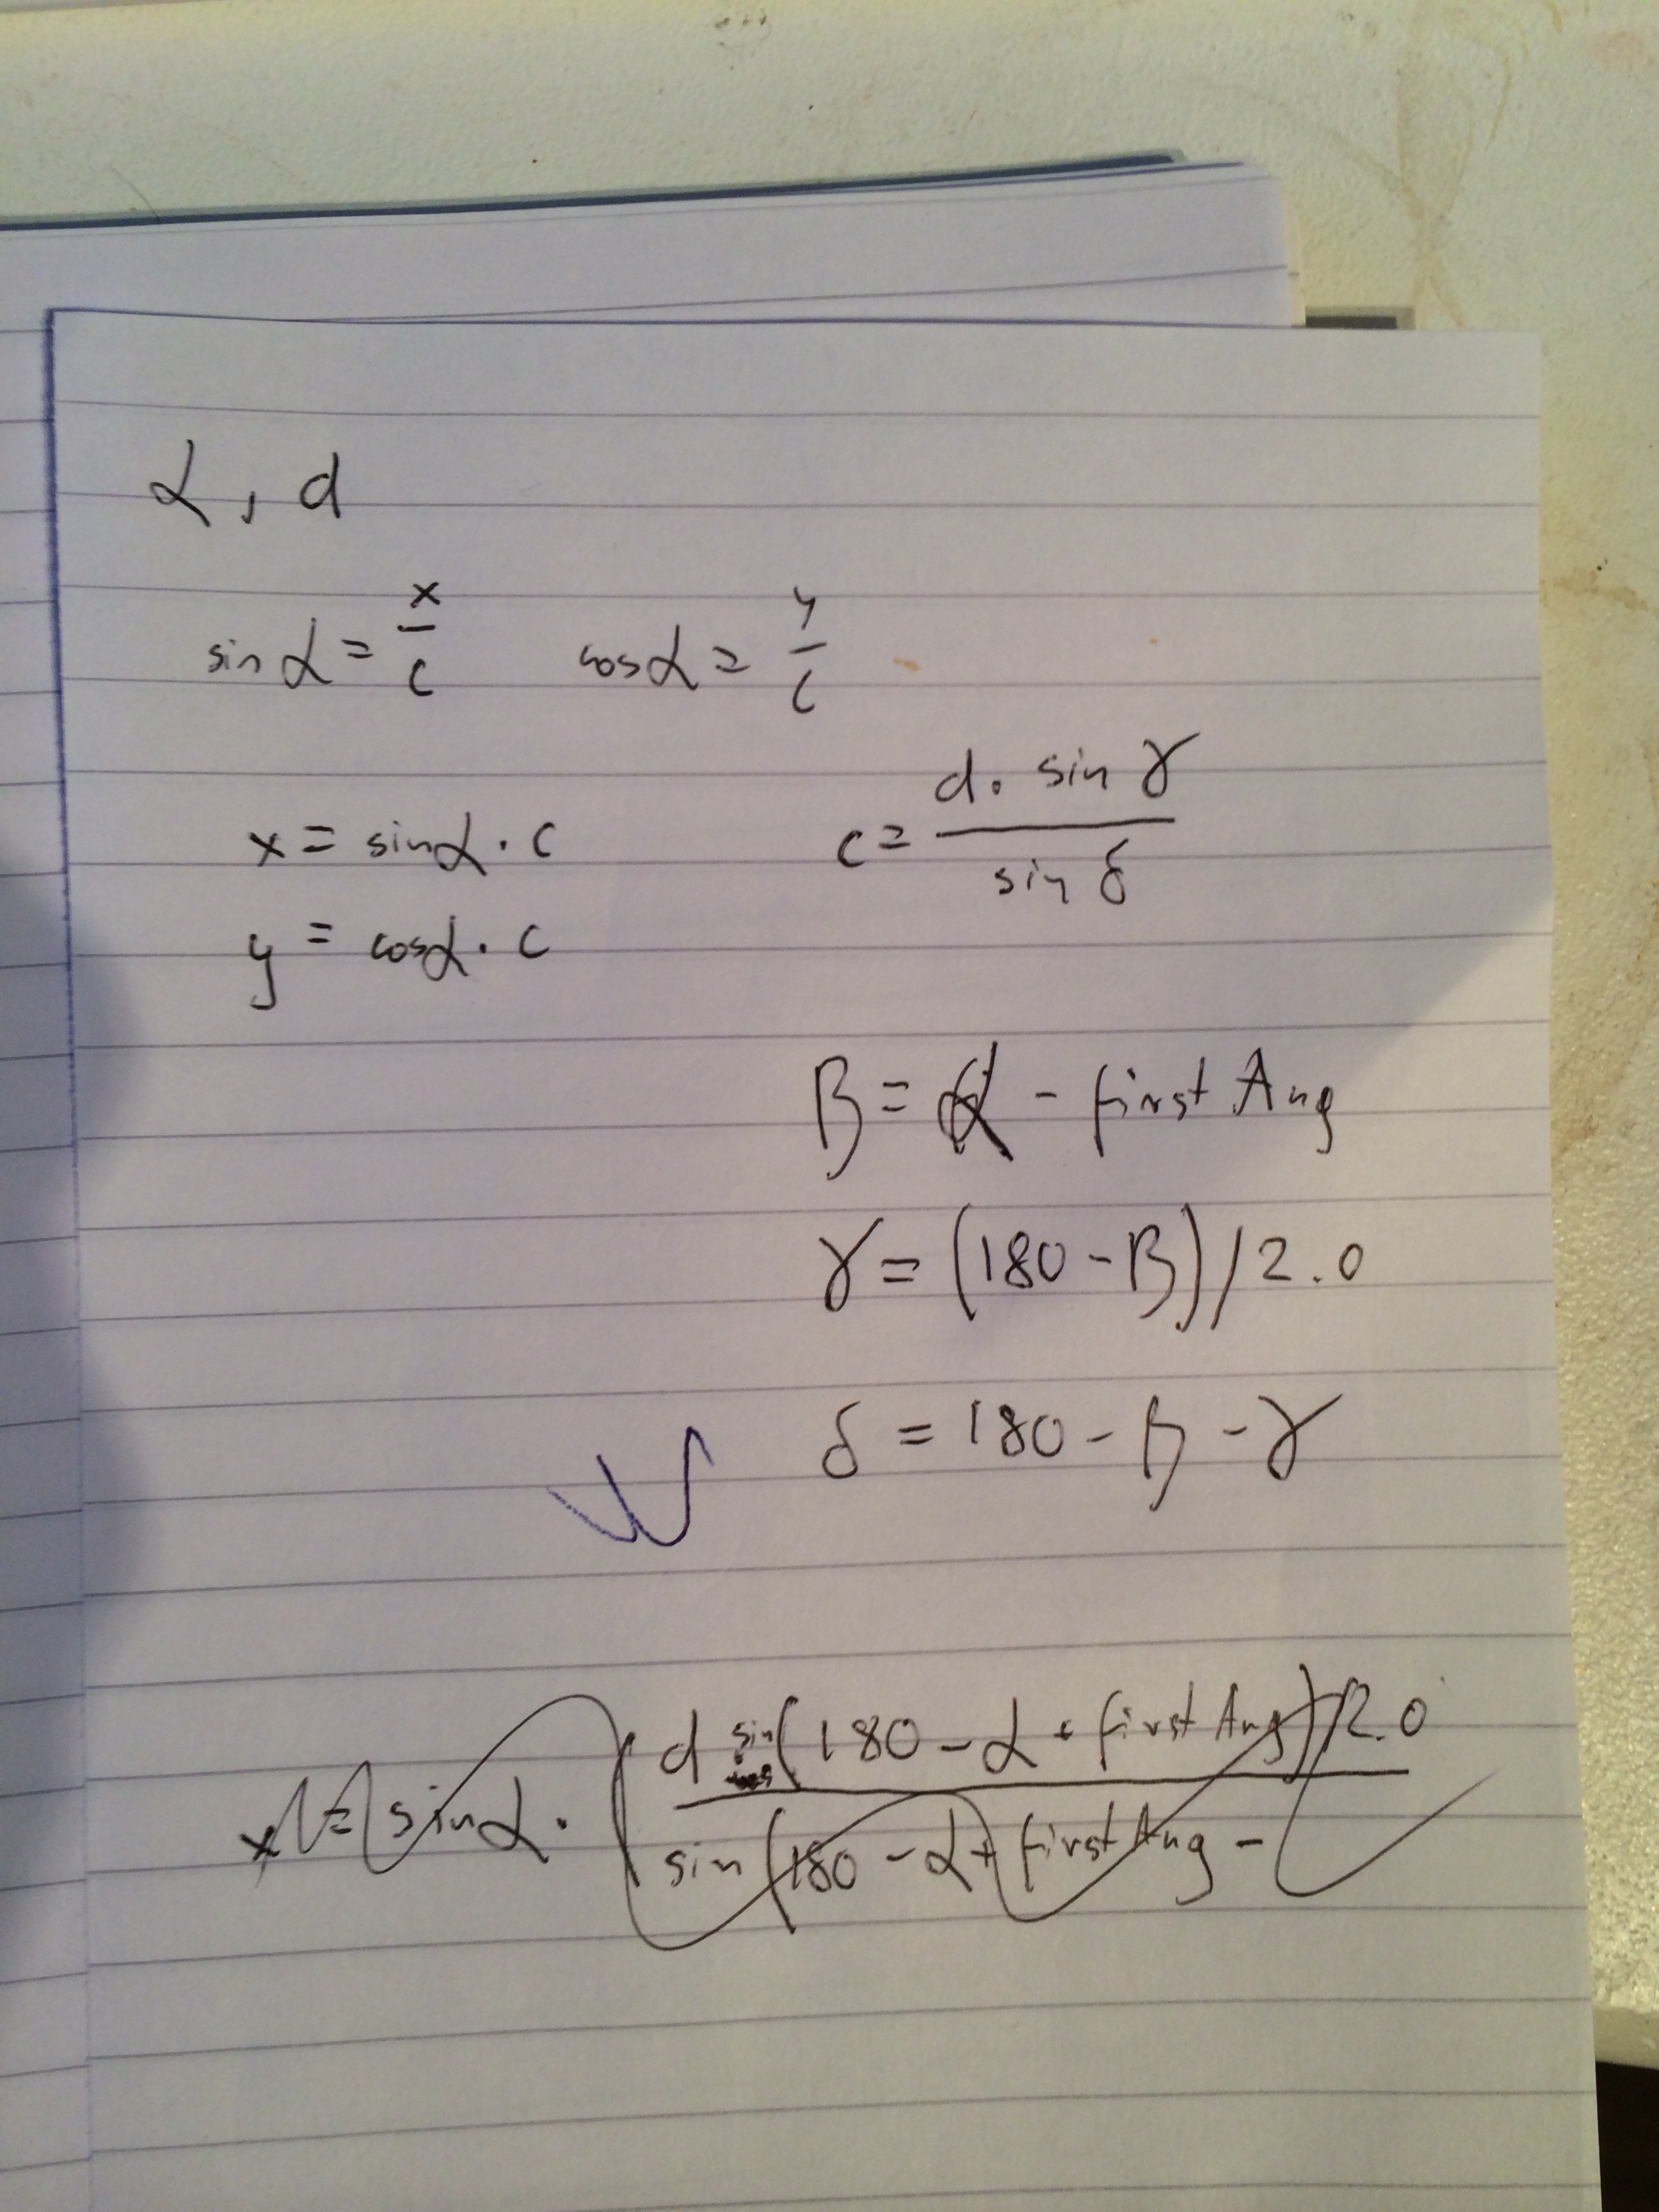 α, d
sin α = x/c    cos α = y/c
x = sin α · c    c = d · sin γ / sin δ
y = cos α · c
β = α - first Ang
γ = (180 - β) / 2.0
δ = 180 - β - γ
x = sin α · (d sin(180 - α + first Ang)/2.0
sin(180 - α + first Ang -